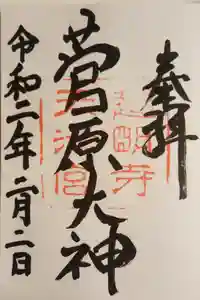 奉拝
道明寺
天満宮
菅原大神
令和二年二月二日